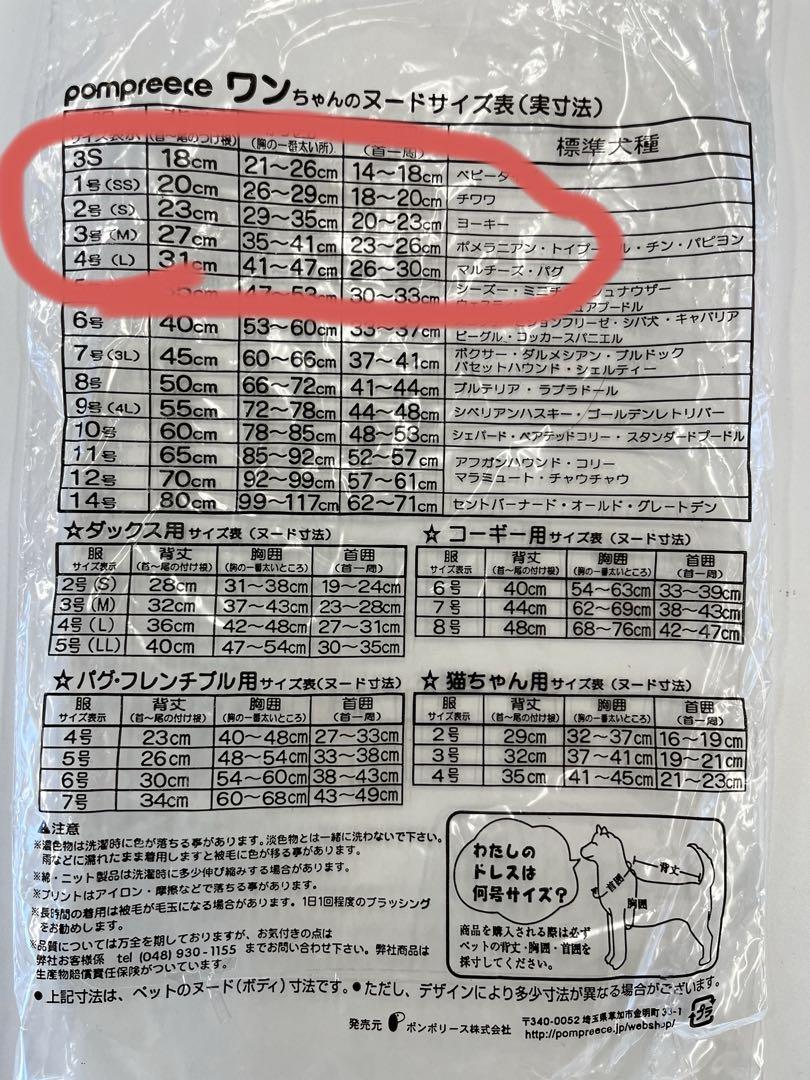 pompreece ワンちゃんのヌードサイズ表(実寸法)
サイズ表示 (首〜尾のつけ根) (胸の一番太い所) (首一周) 標準犬種
3S 18cm 21〜26cm 14〜18cm ベビータ
1号(SS) 20cm 26〜29cm 18〜20cm チワワ
2号(S) 23cm 29〜35cm 20〜23cm ヨーキー
3号(M) 27cm 35〜41cm 23〜26cm ポメラニアン・トイプードル・チン・パピヨン
4号(L) 31cm 41〜47cm 26〜30cm マルチーズ・パグ
47〜53cm 30〜33cm シーズー・ミニチュアシュナウザー
6号 40cm 53〜60cm 33〜37cm ションフリーゼ・シバ犬・キャバリア
ビーグル・コッカースパニエル
7号(3L) 45cm 60〜66cm 37〜41cm ボクサー・ダルメシアン・ブルドック
バセットハウンド・シェルティー
8号 50cm 66〜72cm 41〜44cm ブルテリア・ラブラドール
9号(4L) 55cm 72〜78cm 44〜48cm シベリアンハスキー・ゴールデンレトリバー
10号 60cm 78〜85cm 48〜53cm シェパード・ベアテッドコリー・スタンダードプードル
11号 65cm 85〜92cm 52〜57cm アフガンハウンド・コリー
12号 70cm 92〜99cm 57〜61cm マラミュート・チャウチャウ
14号 80cm 99〜117cm 62〜71cm セントバーナード・オールド・グレートデン
☆ダックス用サイズ表(ヌード寸法)
服サイズ表示 背丈(首〜尾の付け根) 胸囲(胸の一番太いところ) 首囲(首一周)
2号(S) 28cm 31〜38cm 19〜24cm
3号(M) 32cm 37〜43cm 23〜28cm
4号(L) 36cm 42〜48cm 27〜31cm
5号(LL) 40cm 47〜54cm 30〜35cm
☆コーギー用サイズ表(ヌード寸法)
服サイズ表示 背丈(首〜尾の付け根) 胸囲(胸の一番太いところ) 首囲(首一周)
6号 40cm 54〜63cm 33〜39cm
7号 44cm 62〜69cm 38〜43cm
8号 48cm 68〜76cm 42〜47cm
☆パグ・フレンチブル用サイズ表(ヌード寸法)
服サイズ表示 背丈(首〜尾の付け根) 胸囲(胸の一番太いところ) 首囲(首一周)
4号 23cm 40〜48cm 27〜33cm
5号 26cm 48〜54cm 33〜38cm
6号 30cm 54〜60cm 38〜43cm
7号 34cm 60〜68cm 43〜49cm
☆猫ちゃん用サイズ表(ヌード寸法)
服サイズ表示 背丈(首〜尾の付け根) 胸囲(胸の一番太いところ) 首囲(首一周)
2号 29cm 32〜37cm 16〜19cm
3号 32cm 37〜41cm 19〜21cm
4号 35cm 41〜45cm 21〜23cm
▲注意
※濃色物は洗濯時に色が落ちる事があります。淡色物とは一緒に洗わないで下さい。
雨などに濡れたまま着用しますと被毛に色が移る事があります。
※綿・ニット製品は洗濯時に多少伸び縮みする場合があります。
※プリントはアイロン・摩擦などで落ちる事があります。
※長時間の着用は被毛が毛玉になる場合があります。1日1回程度のブラッシング
をお勧めします。
※品質については万全を期しておりますが、お気付きの点は
弊社お客様係 tel (048) 930-1155 までお問い合わせ下さい。弊社商品は
生産物賠償責任保険がついています。
わたしの
ドレスは
何号サイズ?
背丈
首囲
胸囲
商品を購入される際は必ず
ペットの背丈・胸囲・首囲を
採寸してください。
●上記寸法は、ペットのヌード(ボディ)寸法です。●ただし、デザインにより多少寸法が異なる場合がございます。
発売元 ポンポリース株式会社
〒340-0052 埼玉県草加市金明町33-1
http://pompreece.jp/webshop/
プラ